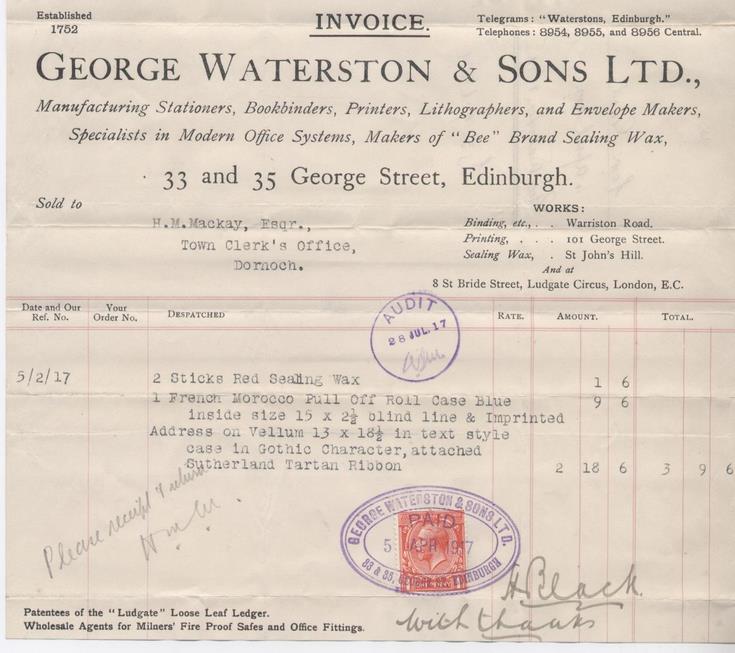 Established
1752
INVOICE.
Telegrams: "Waterstons, Edinburgh."
Telephones: 8954, 8955, and 8956 Central.
GEORGE WATERSTON & SONS LTD.,
Manufacturing Stationers, Bookbinders, Printers, Lithographers, and Envelope Makers,
Specialists in Modern Office Systems, Makers of "Bee" Brand Sealing Wax,
33 and 35 George Street, Edinburgh.
Sold to
H.M.Mackay, Esqr.,
Town Clerk's Office,
Dornoch.
WORKS:
Binding, etc., . . Warriston Road.
Printing, . . . 101 George Street.
Sealing Wax, . St John's Hill.
And at
8 St Bride Street, Ludgate Circus, London, E.C.
Date and Our Ref. No. Your Order No. DESPATCHED RATE. AMOUNT. TOTAL.
AUDIT
28 JUL. 17
5/2/17 2 Sticks Red Sealing Wax 1 6
1 French Morocco Pull Off Roll Case Blue 9 6
inside size 15 x 2½ blind line & Imprinted
Address on Vellum 13 x 18½ in text style
case in Gothic Character, attached
Sutherland Tartan Ribbon 2 18 6 3 9 6
Please receipt & return
GEORGE WATERSTON & SONS LTD.
PAID
5 APR 1917
33 & 35, GEORGE ST. EDINBURGH
H Black
With thanks
Patentees of the "Ludgate" Loose Leaf Ledger.
Wholesale Agents for Milners' Fire Proof Safes and Office Fittings.